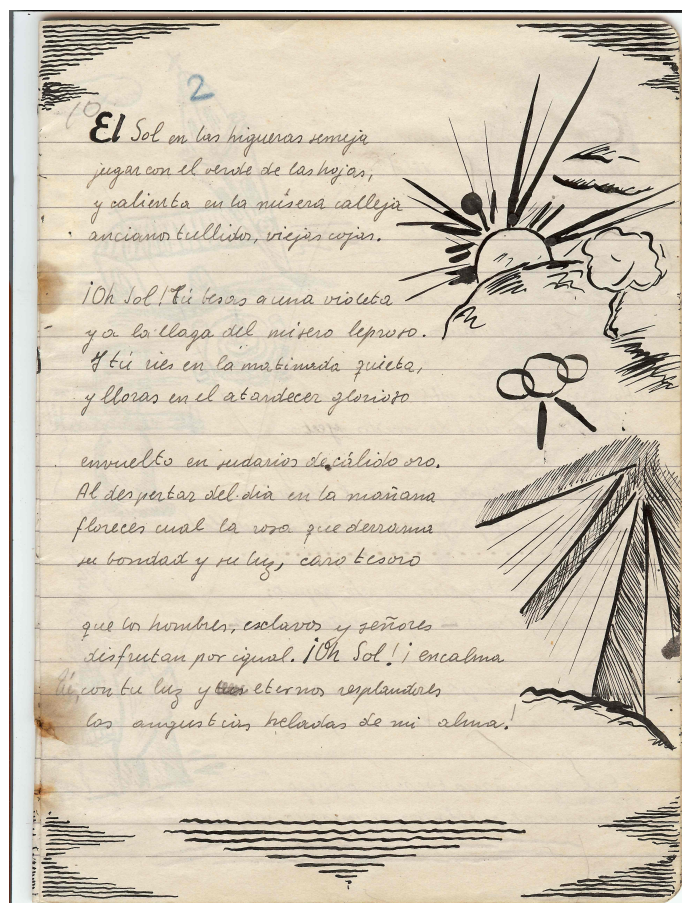 2
10
El Sol en las higueras semeja
jugar con el verde de las hojas,
y calienta en la mísera calleja
ancianos tullidos, viejas cojas.
¡Oh Sol! Tú besas a una violeta
y a la llaga del mísero leproso.
Y tú ries en la matinada quieta,
y lloras en el atardecer glorioso
envuelto en sudarios de cálido oro.
Al despertar del dia en la mañana
floreces cual la rosa que derrama
su bondad y su luz, caro tesoro
que los hombres, esclavos y señores
disfrutan por igual. ¡Oh Sol! ¡encalma
con tu luz y eternos resplandores
las angustias heladas de mi alma!